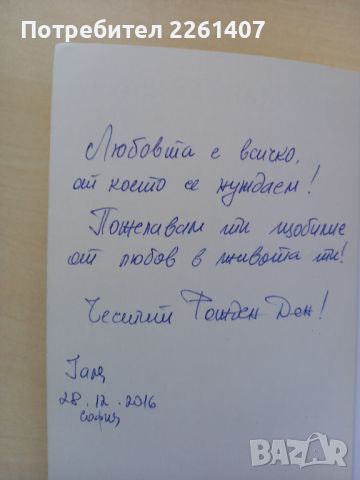 Потребител 2261407
Любовта е всичко,
от което се нуждаем!
Пожелавам ти изобилие
от любов в живота ти!
Честит Рожден Ден!
Галя
28.12.2016
София
BAZAR